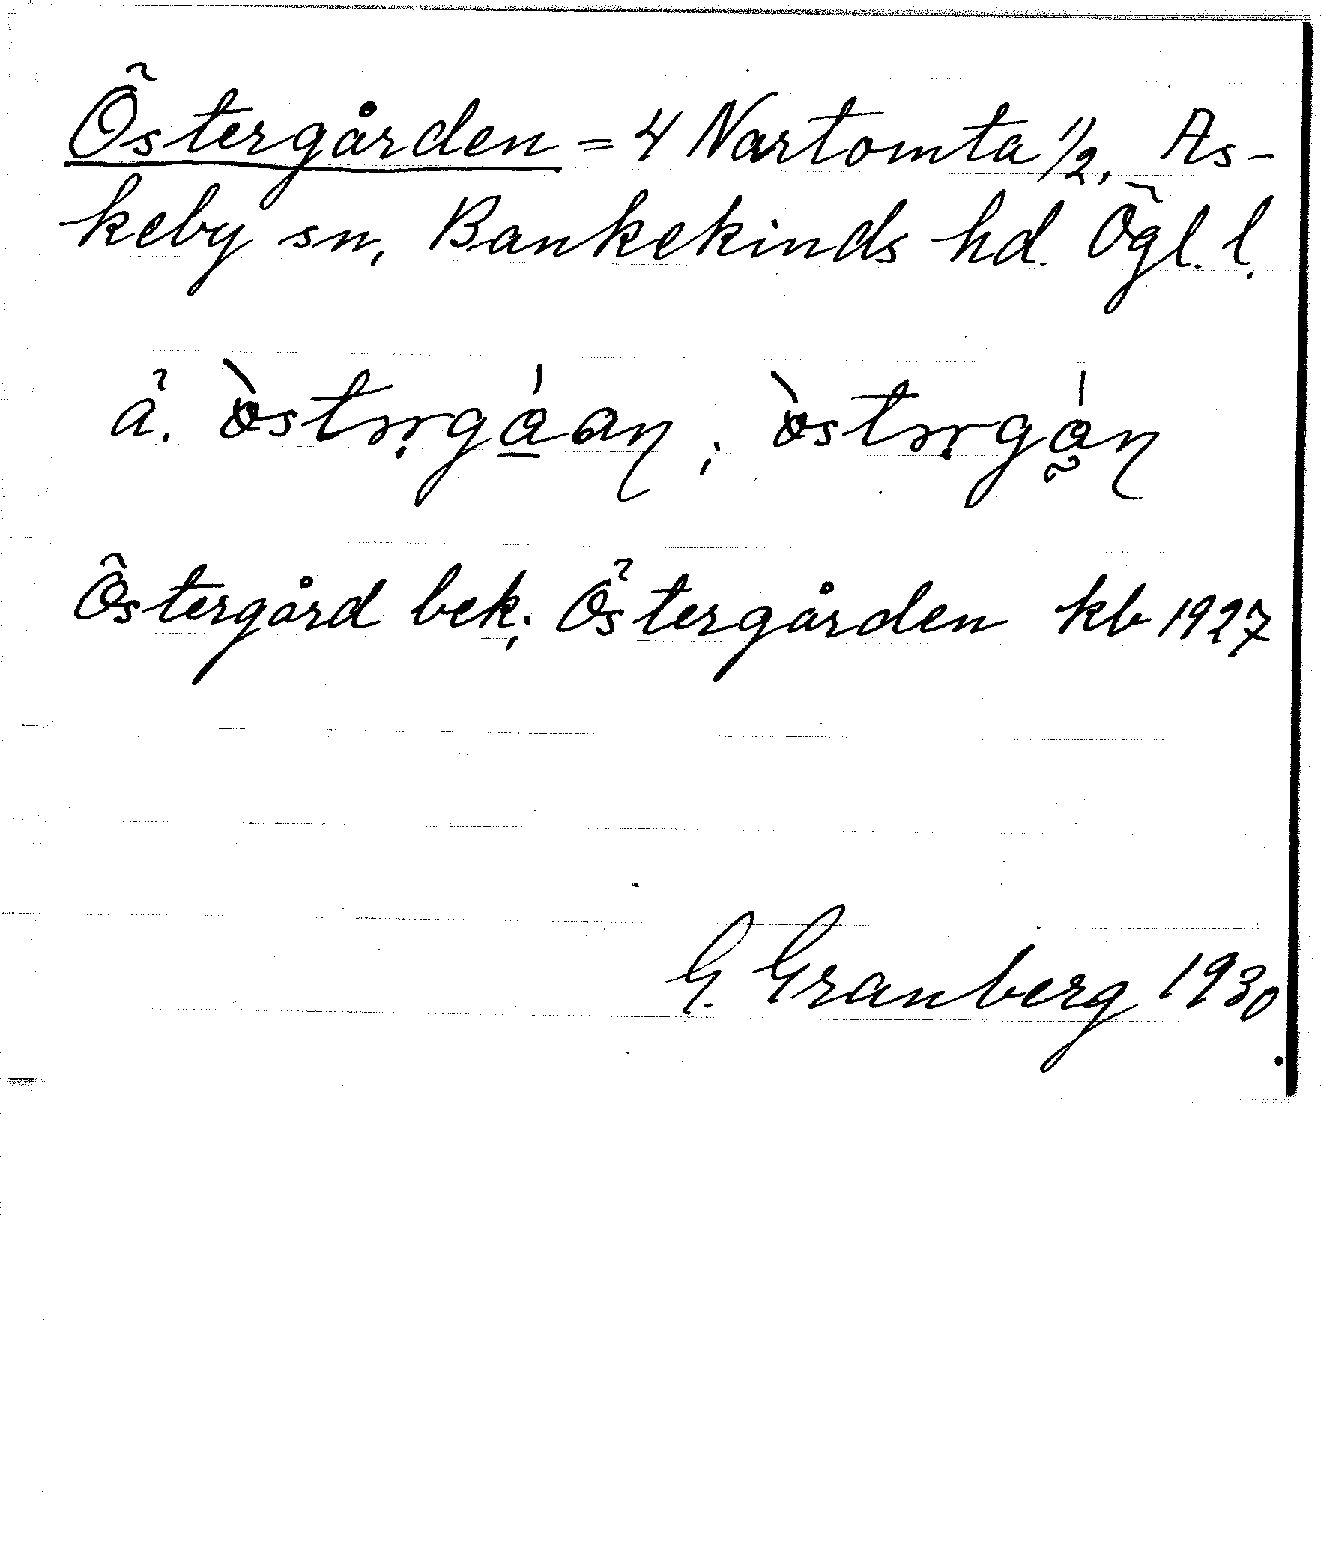 Östergården = 4 Nartomta 1/2, As-
keby sn, Bankekinds hd. Ögl. l.
å.
Östergård bek; Östergården kb 1927
G. Granberg 1930